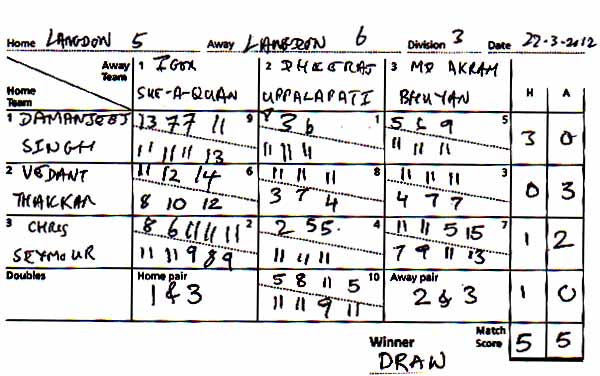 Home LANGDON 5 Away LANGDON 6 Division 3 Date 27-3-2012
Away Team 1 IGOR 2 DHEERAJ 3 MD AKRAM
Home Team SHE-A-QUAN UPPALAPATI BHUYAN H A
1 DAMANJEEJ 13 7 7 11 9 8 3 6 1 5 8 9 5
SINGH 11 11 11 13 11 11 11 11 11 11 3 0
2 VEDANT 11 12 14 6 11 11 11 8 11 11 11 3
THAKKAR 8 10 12 3 7 4 4 7 7 0 3
3 CHRIS 8 6 11 11 11 2 2 5 5 4 11 11 5 15 7
SEYMOUR 11 11 9 8 9 11 11 11 7 9 11 13 1 2
Doubles Home pair 5 8 11 5 10 Away pair
1 & 3 11 11 9 11 2 & 3 1 0
Winner Match Score 5 5
DRAW